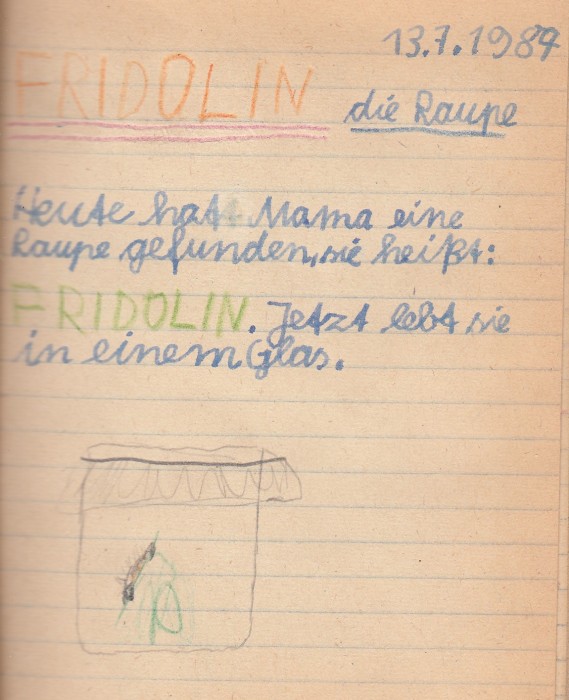 13.7.1987
FRIDOLIN die Raupe
Heute hat Mama eine
Raupe gefunden, sie heißt:
FRIDOLIN. Jetzt lebt sie
in einem Glas.